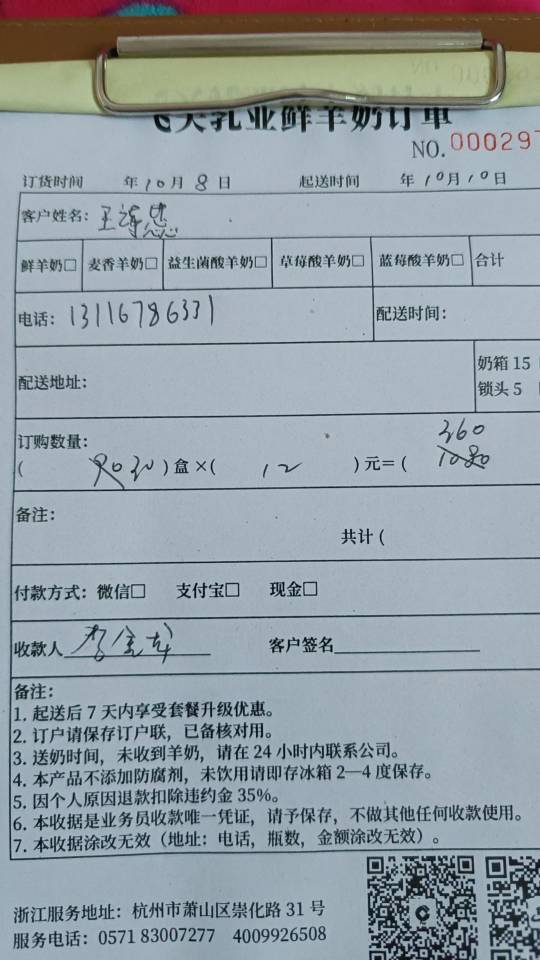 飞天乳业鲜羊奶订单
NO. 000297
订货时间 年10月8日 起送时间 年10月10日
客户姓名：王
鲜羊奶□ 麦香羊奶□ 益生菌酸羊奶□ 草莓酸羊奶□ 蓝莓酸羊奶□ 合计
电话：13116786331 配送时间：
配送地址： 奶箱 15
锁头 5
订购数量： 360
( 90 30 ) 盒 ×( 12 ) 元＝( 1080
备注：
共计 (
付款方式：微信□ 支付宝□ 现金□
收款人 李金龙 客户签名
备注：
1. 起送后 7 天内享受套餐升级优惠。
2. 订户请保存订户联，已备核对用。
3. 送奶时间，未收到羊奶，请在 24 小时内联系公司。
4. 本产品不添加防腐剂，未饮用请即存冰箱 2—4 度保存。
5. 因个人原因退款扣除违约金 35%。
6. 本收据是业务员收款唯一凭证，请予保存，不做其他任何收款使用。
7. 本收据涂改无效（地址：电话，瓶数，金额涂改无效）。
浙江服务地址：杭州市萧山区崇化路 31 号
服务电话：0571 83007277 4009926508